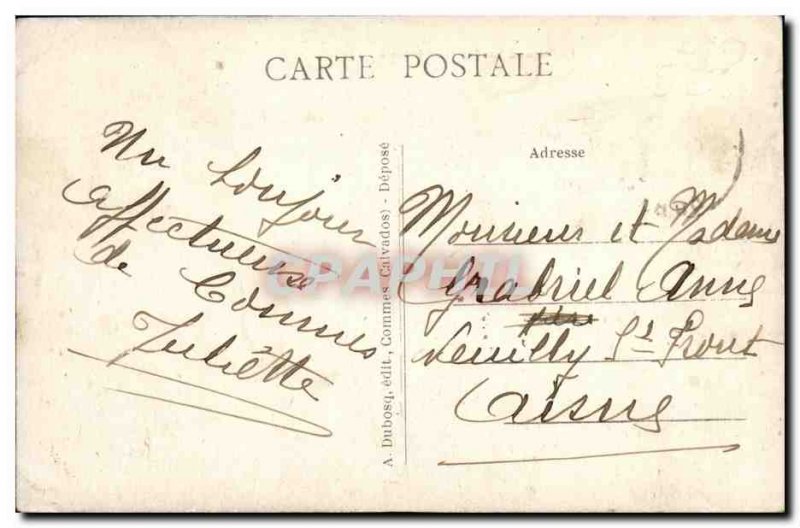 CARTE POSTALE
Un bonjour
affectueuse
de Commes
Juliette
A. Dubosq, édit., Commes (Calvados) - Déposé
Adresse
Monsieur et Madame
Gabriel Anne
Neuilly St Front
Aisne
CPAPHIL